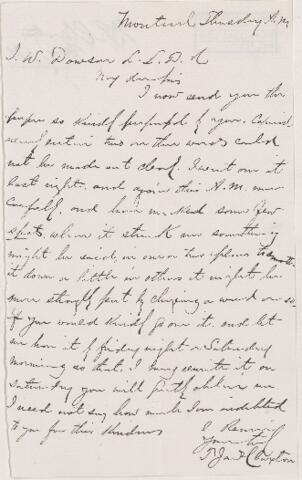 Montreal Thursday A.M.
J. W. Dawson L.L.D. &
My dear Sir
I now send you the
paper so kindly prepared by you.
two or three words could
not be made out clearly. I went over it
last night, and again this A.M. more
carefully, and have marked some few
spots, where it struck me something
might be said, in one or two places to
it down a little in others it might be
more strongly put by changing a word or so
if you would kindly go over it, and let
me have it by friday night or Saturday
morning so that I may it on
Saturday you will greatly oblige me
I need not say how much I am indebted
to you for this kindness
I Remain
Yours truly
T. Jas Claxton